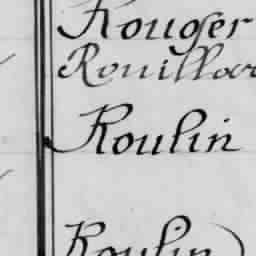 Rouger
Rouillar
Roulin
Roulin